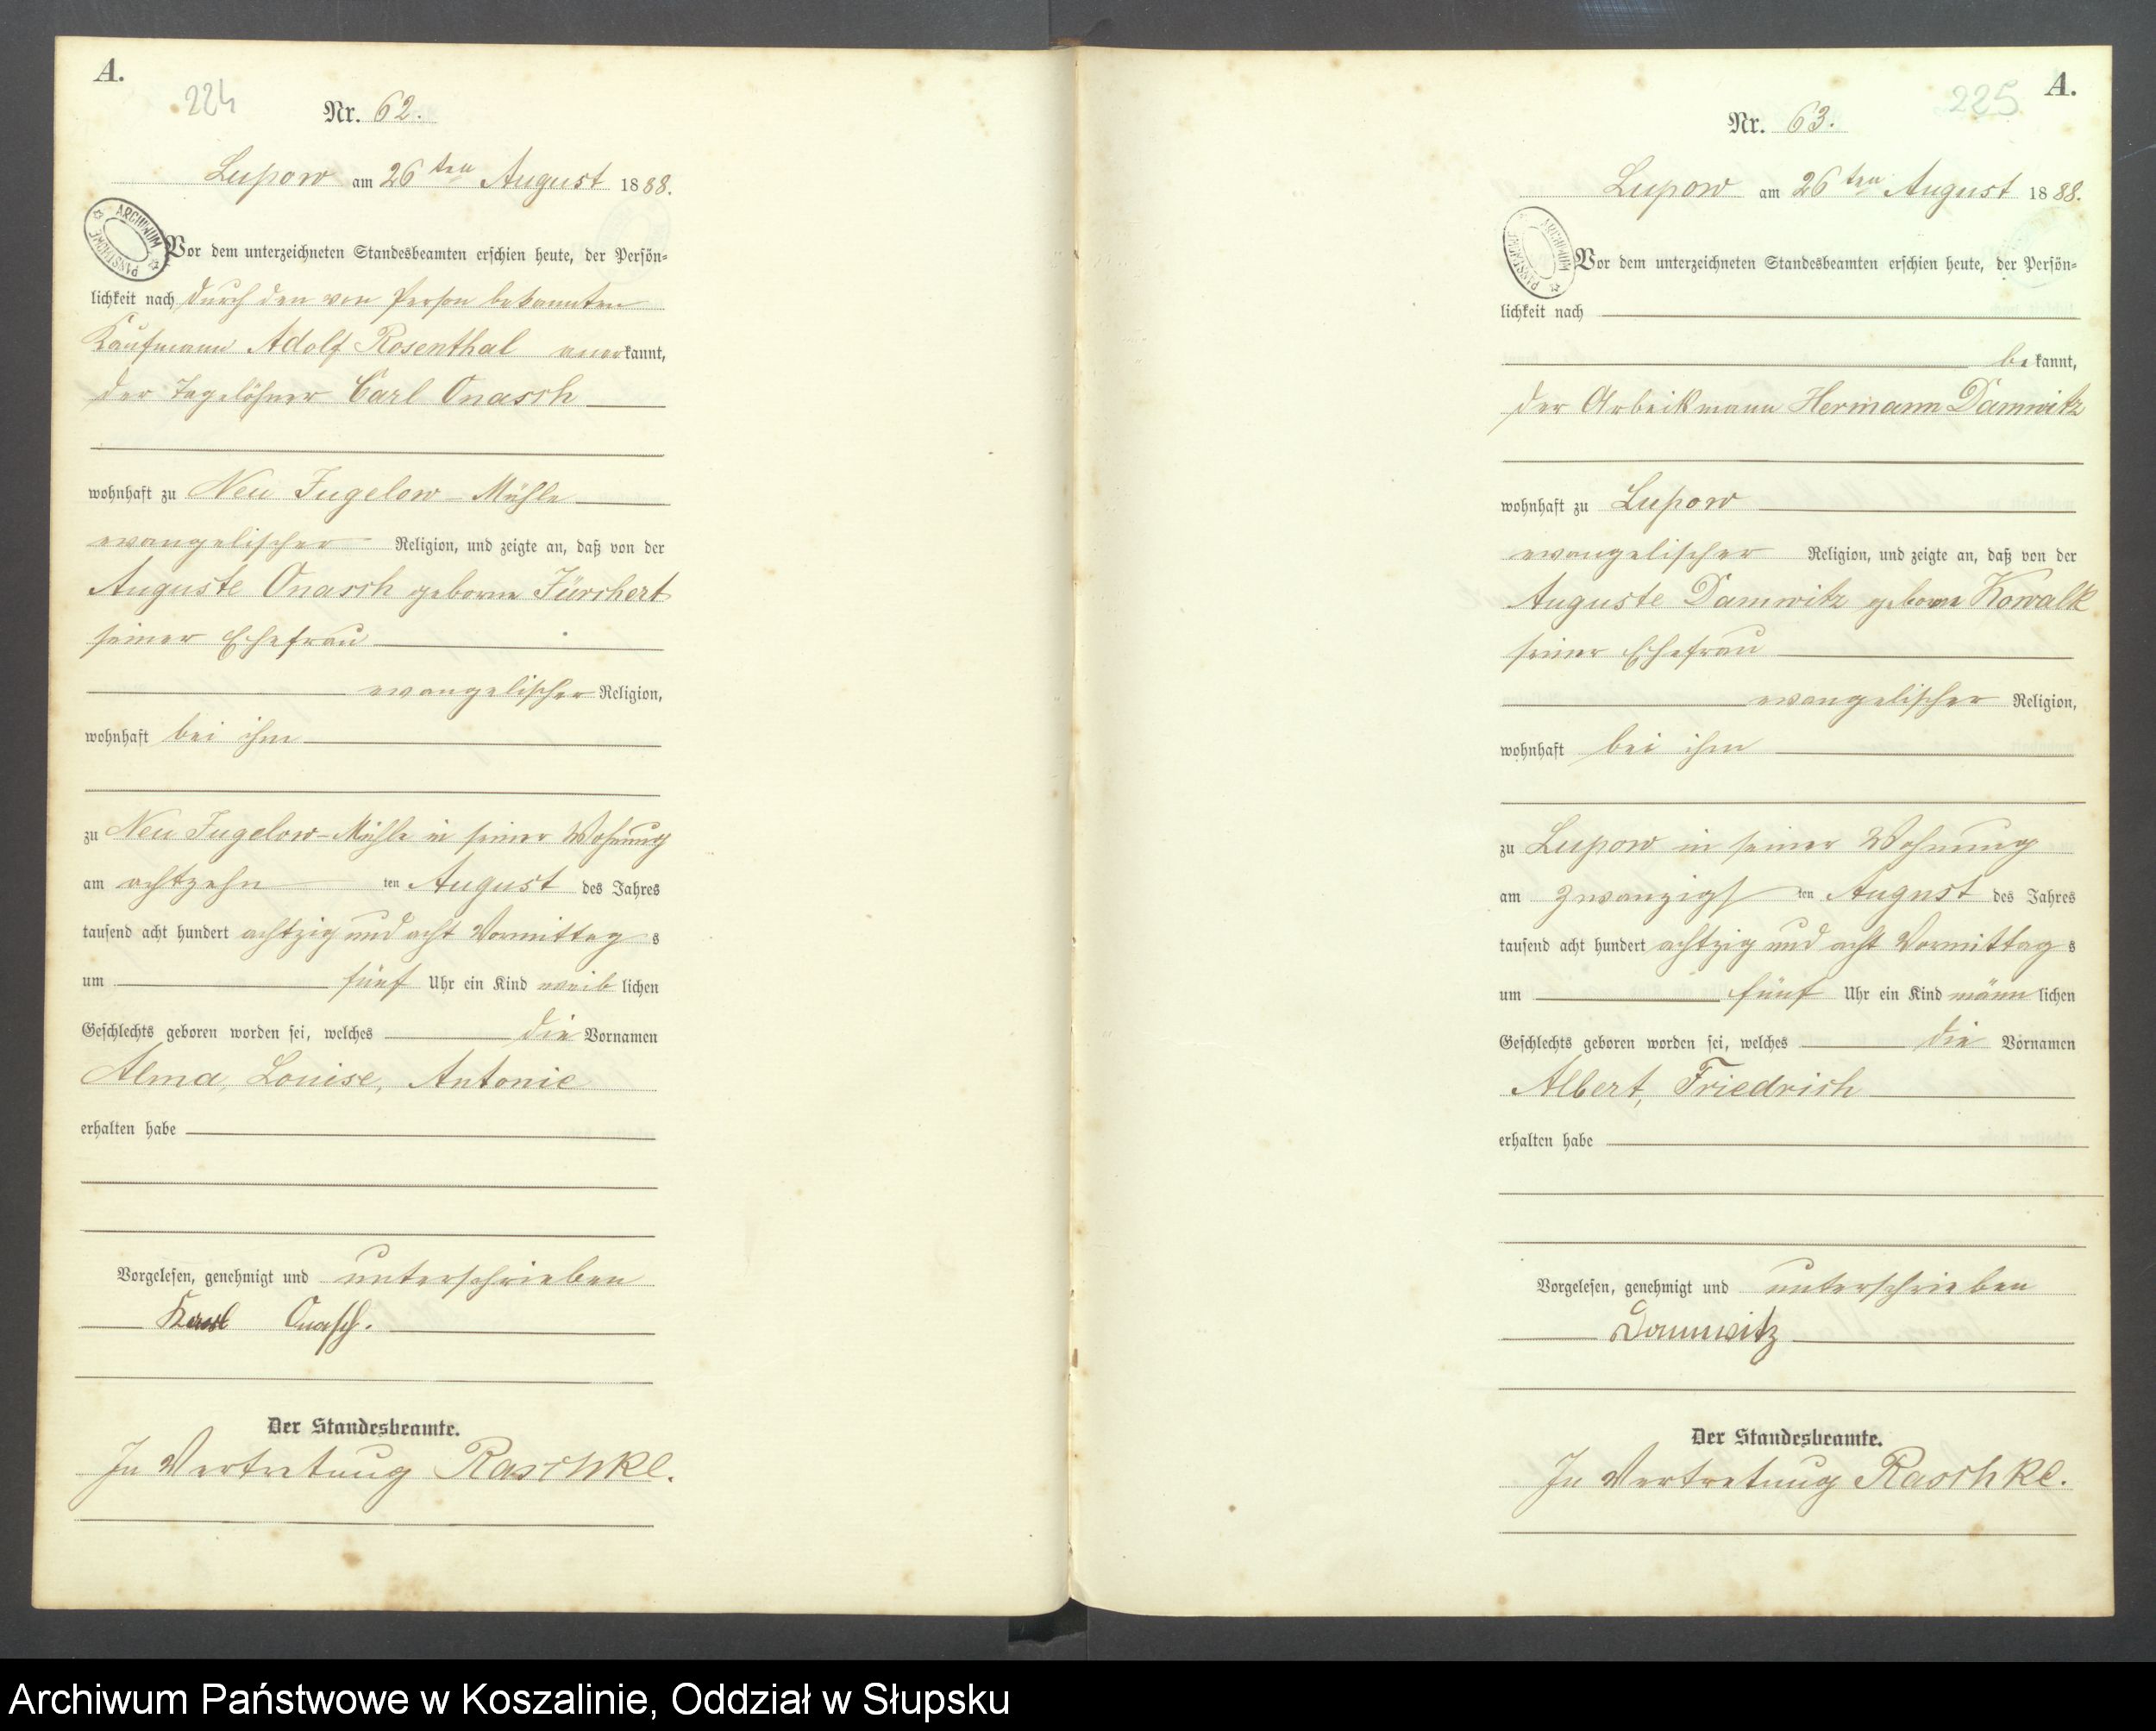 A.
224
Nr. 62.
Lupow am 26ten August 1888.
ARCHIWUM PAŃSTWOWE
Vor dem unterzeichneten Standesbeamten erschien heute, der Persön-
lichkeit nach durch den von Person bekannten
Kaufmann Adolf Rosenthal anerkannt,
der Tagelöhner Carl Onasch
wohnhaft zu Neu Jugelow-Mühle
evangelischer Religion, und zeigte an, daß von der
Auguste Onasch geborne Fürchert
seiner Ehefrau
evangelischer Religion,
wohnhaft bei ihm
zu Neu Jugelow-Mühle in seiner Wohnung
am achtzehn ten August des Jahres
tausend acht hundert achtzig und acht Vormittags
um fünf Uhr ein Kind weiblichen
Geschlechts geboren worden sei, welches die Vornamen
Alma, Louise, Antonie
erhalten habe
Vorgelesen, genehmigt und unterschrieben
Karl Onasch.
Der Standesbeamte.
In Vertretung Raschke.
225
A.
Nr. 63.
Lupow am 26ten August 1888.
ARCHIWUM PAŃSTWOWE
Vor dem unterzeichneten Standesbeamten erschien heute, der Persön-
lichkeit nach
bekannt,
der Arbeitsmann Hermann Damwitz
wohnhaft zu Lupow
evangelischer Religion, und zeigte an, daß von der
Auguste Damwitz geborne Kowalk
seiner Ehefrau
evangelischer Religion,
wohnhaft bei ihm
zu Lupow in seiner Wohnung
am zwanzigsten August des Jahres
tausend acht hundert achtzig und acht Vormittags
um fünf Uhr ein Kind männlichen
Geschlechts geboren worden sei, welches die Vornamen
Albert, Friedrich
erhalten habe
Vorgelesen, genehmigt und unterschrieben
Dammwitz
Der Standesbeamte.
In Vertretung Raschke.
Archiwum Państwowe w Koszalinie, Oddział w Słupsku